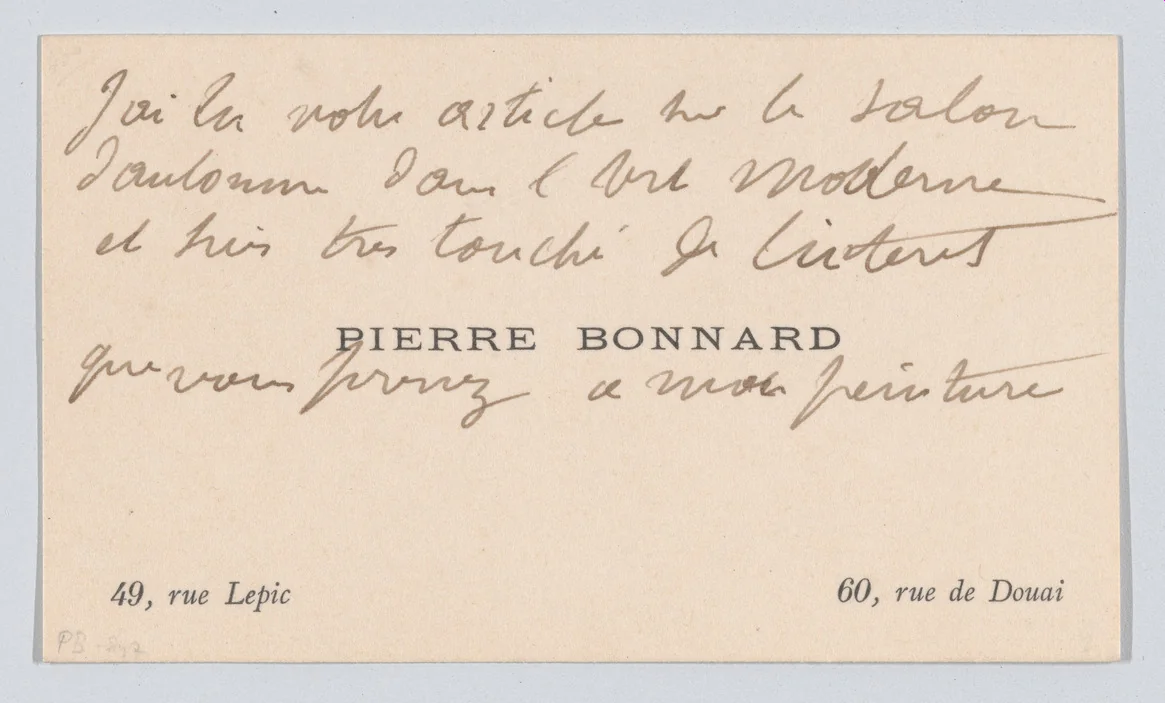 J'ai lu votre article sur le salon
d'automne dans l'Art Moderne
et suis très touché de l'intérêt
PIERRE BONNARD
que vous prenez a ma peinture
49, rue Lepic
60, rue de Douai